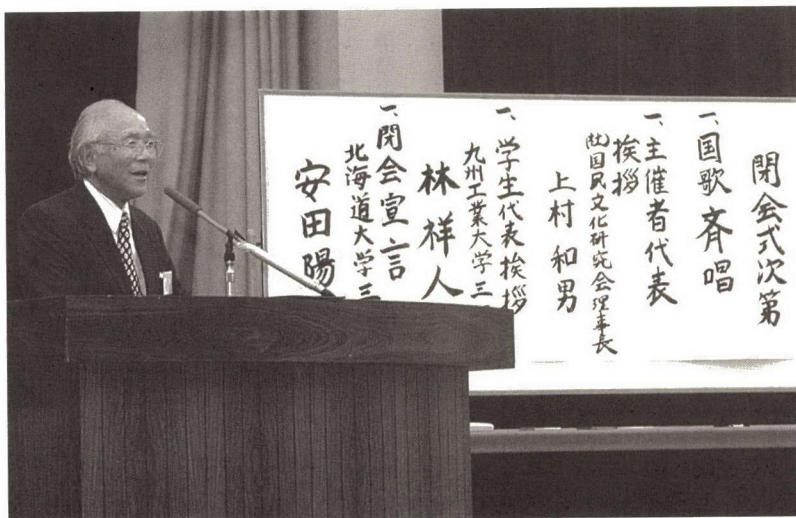 閉会式次第
一、国歌斉唱
一、主催者代表
挨拶
(社)国民文化研究会理事長
上村和男
一、学生代表挨拶
九州工業大学三
林祥人
一、閉会宣言
北海道大学三
安田陽